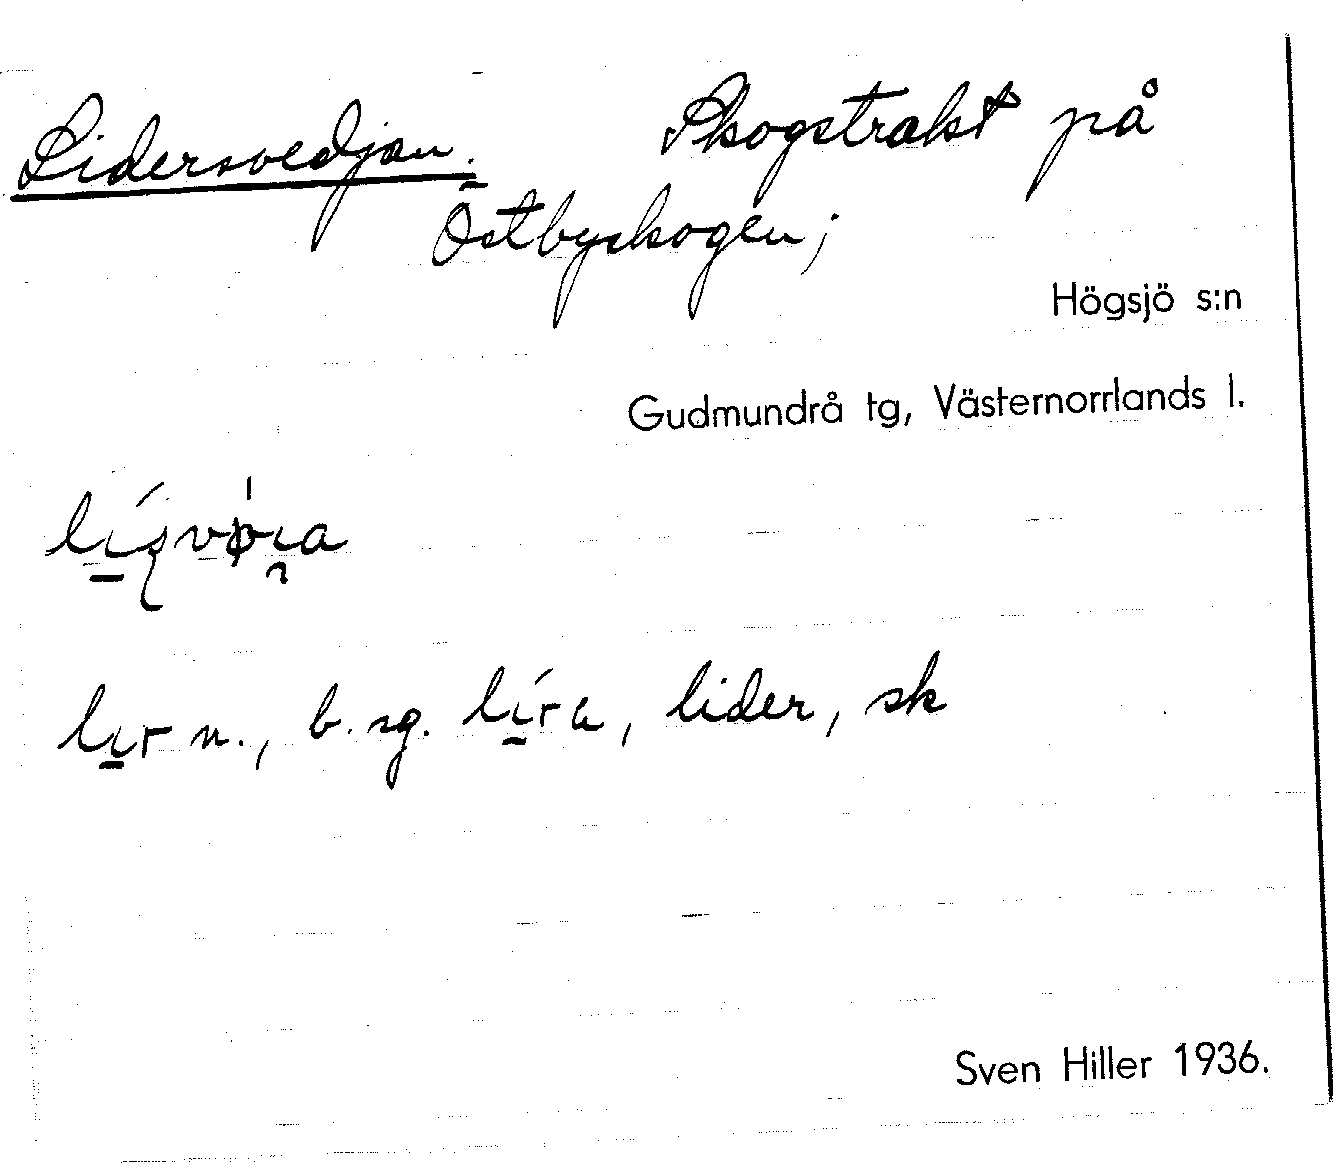 Lidersvedjan. Skogstrakt på
Östbyskogen;
Högsjö s:n
Gudmundrå tg, Västernorrlands l.
lır n., b. sg. líra, lider, sk
Sven Hiller 1936.